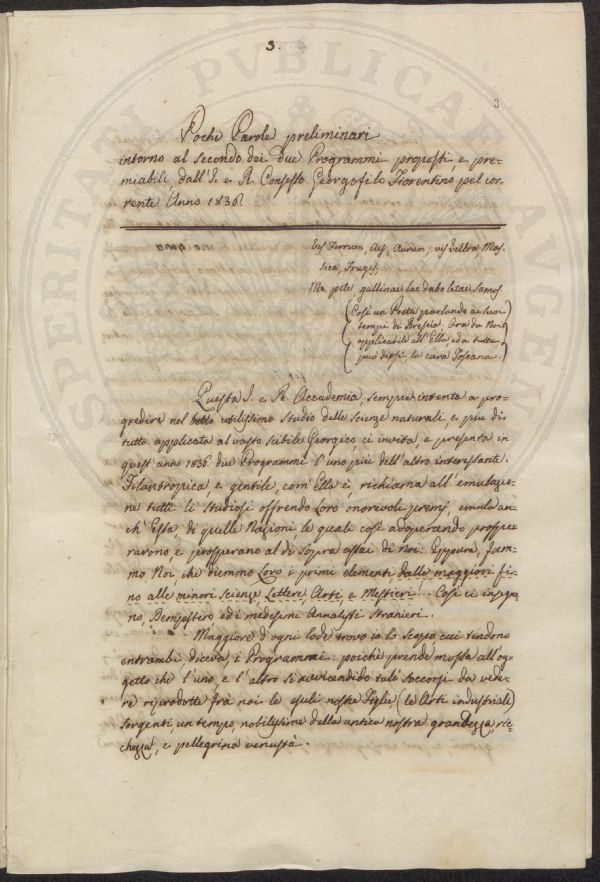 3.
3
Poche Parole preliminari
intorno al secondo dei due Programmi proposti, e pre=
miabili dall'I. e R. Consesso Georgofilo Fiorentino pel cor=
rente Anno 1836.
Vis Ferrum, Aes, Aurum; vis Veltra, Mas=
sica, Fruges,
Me petes gallinae lac dabo
(Così un Poeta parlando ai suoi
tempi di Brescia. Ora da Noi
applicabile all'Elba, ed a tutta
può dirsi la cara Toscana.)
Questa I. e R. Accademia, sempre intenta a pro=
gredire nel bello utilissimo Studio delle Scienze naturali e, più di
tutto applicata al vasto scibile Georgico, ci invita, e presenta in
quest'anno 1836 due Programmi l'uno più dell'altro interessante.
Filantropica, e gentile, com'Ella è, richiama all'emulazio=
ne tutti li Studiosi offrendo Loro onorevoli premj, emula an=
ch'Essa, di quelle Nazioni, le quali così adoperando prospe=
rarono, e prosperano al di sopra assai di Noi: Eppure, fum=
mo Noi, che diemmo Loro i primi elementi dalle maggiori fi=
no alle minori Scienze, Lettere, Arti, e Mestieri.... Così ci insegna=
no, ed i medesimi Annalisti Stranieri.
Maggiore d'ogni lode trovo io lo scopo cui tendono
entrambi, diceva, i Programmi: poichè prende mossa all'og=
getto che l'uno, e l'altro si avvicendino tali soccorsi da vede=
re riprodotte frà noi le esuli nostre Figlie (le Arti industriali)
sorgenti, un tempo, nobilissime della antica nostra grandezza, ric=
chezza, e pellegrina venustà.